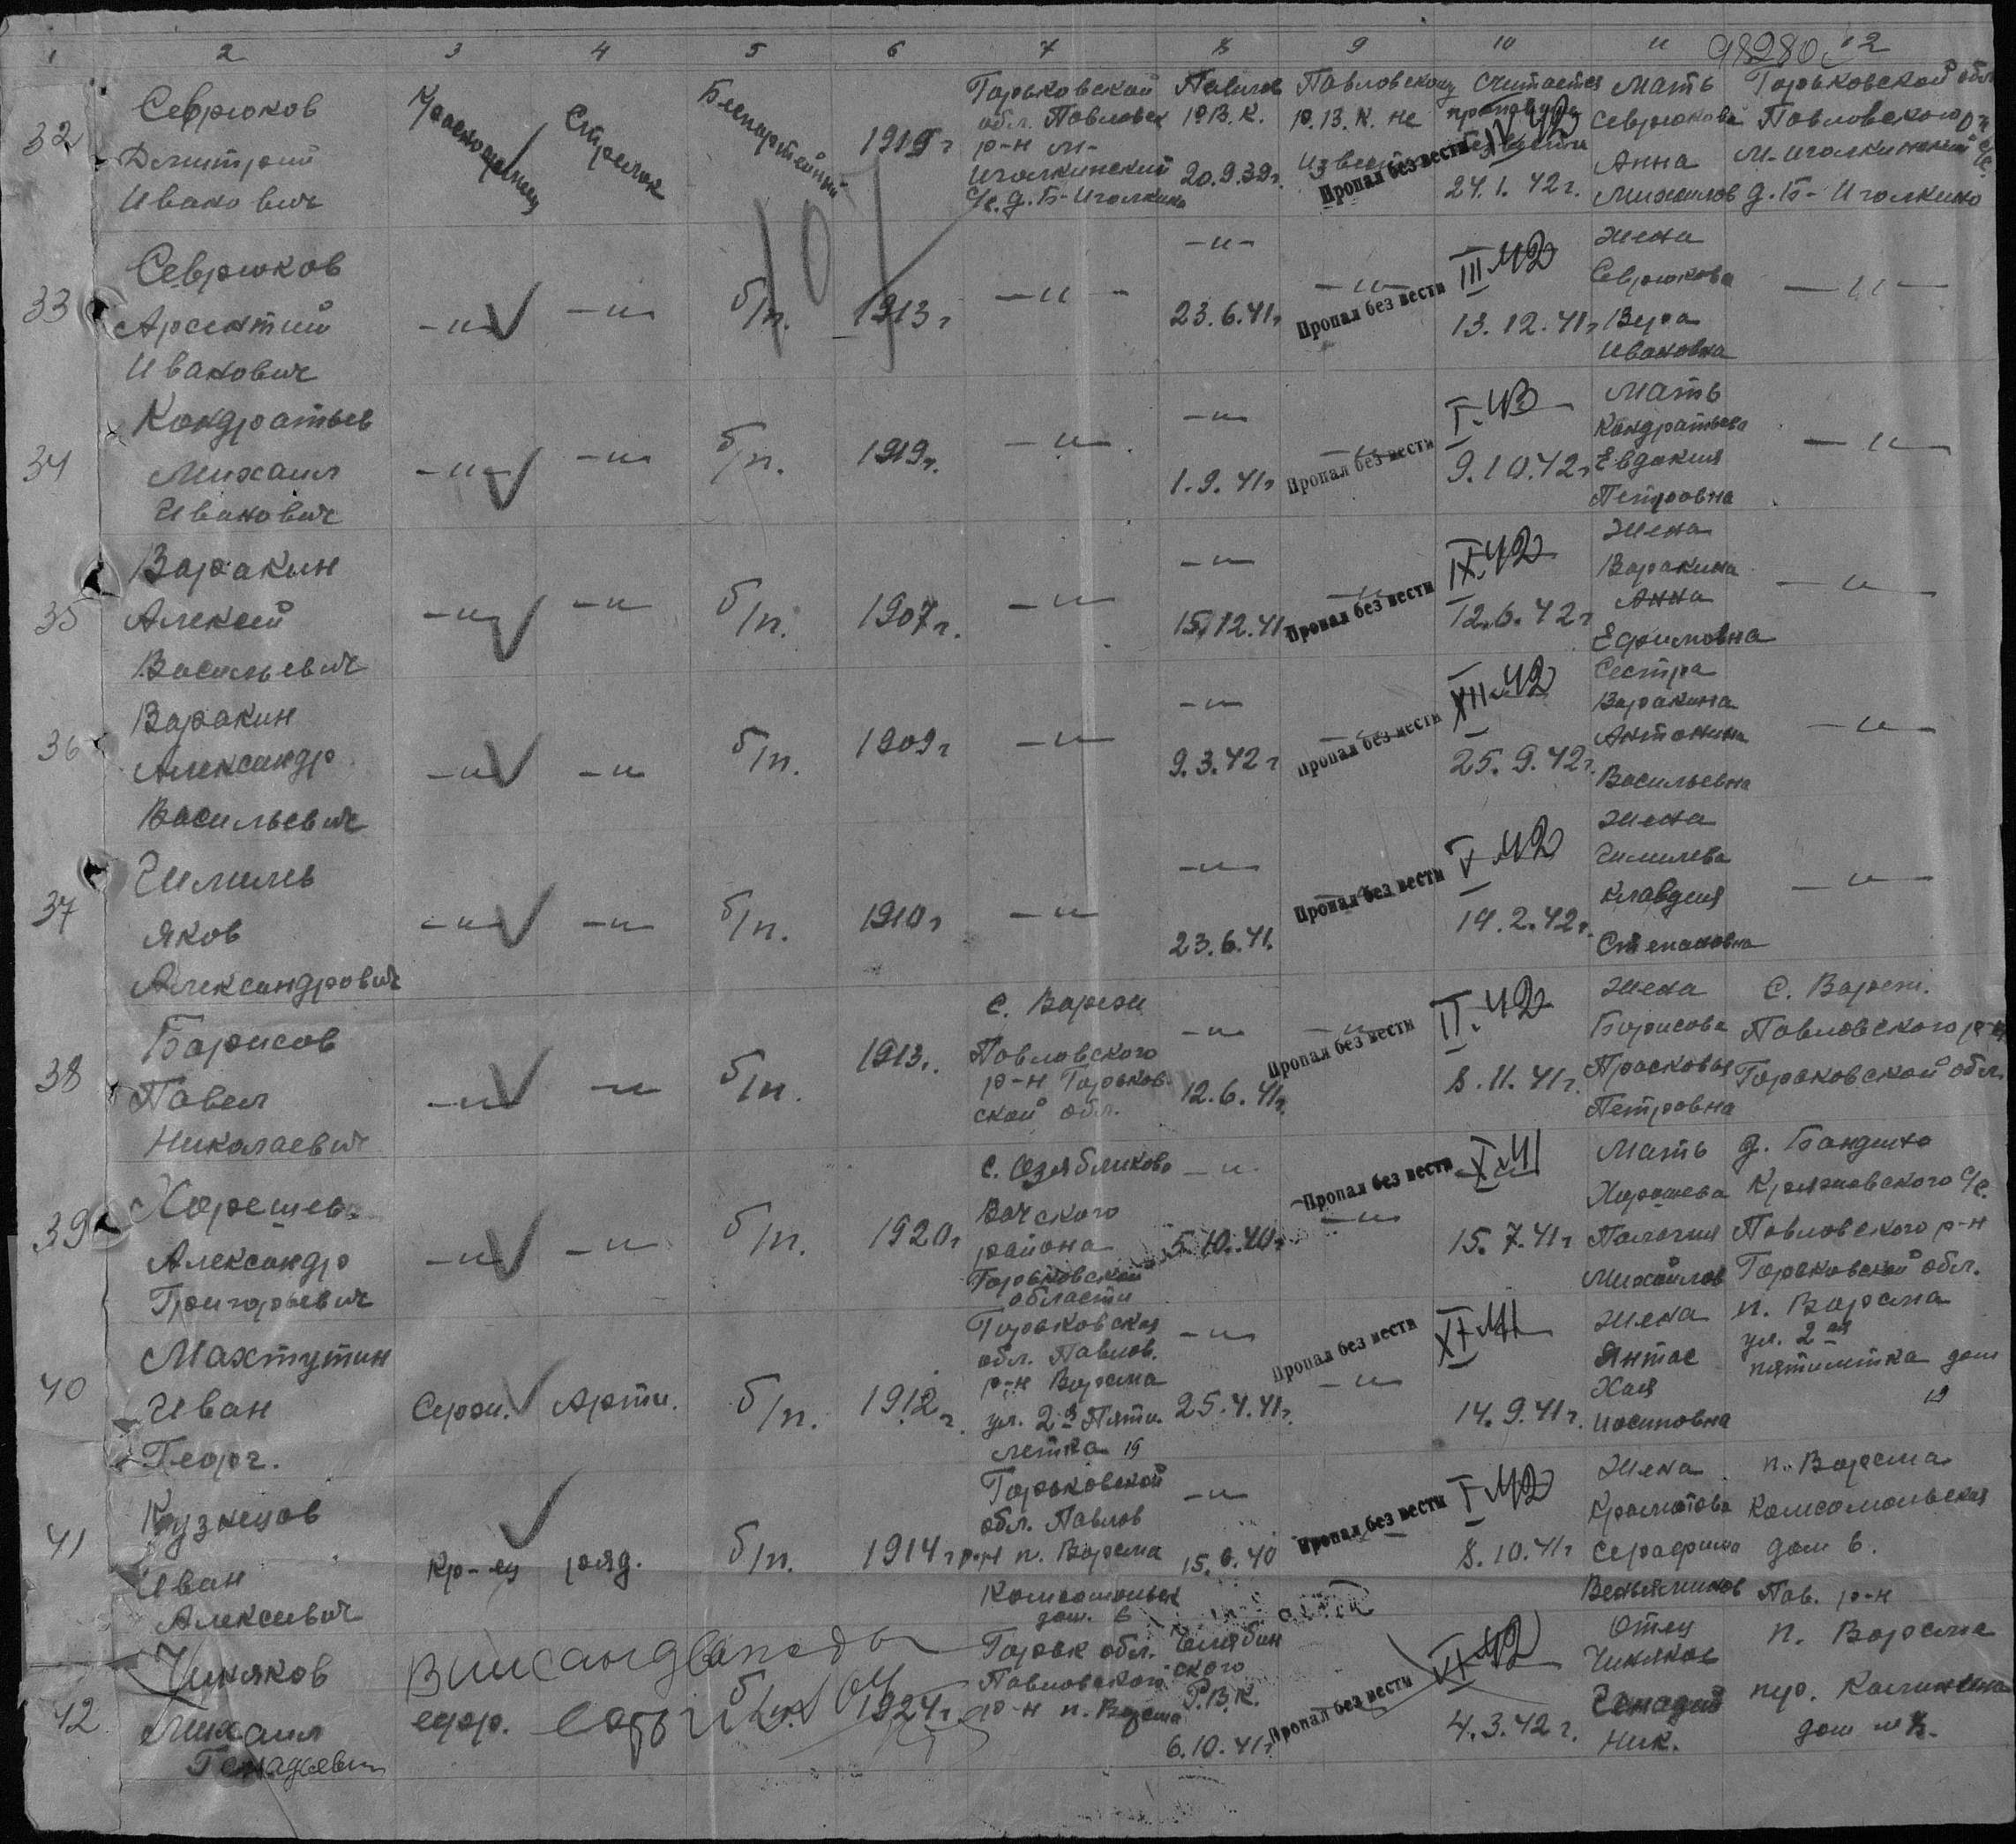 1 2 3 4 5 6 7 8 9 10 11 12
98280
32
Севрюков
Дмитрий
Иванович
Красноармеец
Стрелок
Беспартейный
1919г
Горьковской
обл. Павловск
р-н М-
Иголкинский
С/с. д. Б-Иголкино
Павлов
Р.В.К.
20.9.39г.
Павловскому
Р.В.К. не
извест
Пропал без вести
Считается
IV.42
24.1.42г.
Мать
Севрюкова
Анна
Михайлов
Горьковской обл
Павловского р-н
М-Иголкинский С/с.
д. Б-Иголкино
101
33
Севрюков
Арсентий
Иванович
-„-
-„-
б/п.
1913г
-„-
-„-
23.6.41г
-„-
Пропал без вести
III.42
13.12.41г
Жена
Севрюкова
Вера
Ивановна
-„-
34
Кондратьев
Михаил
Иванович
-„-
-„-
б/п.
1919г.
-„-
-„-
1.9.41г
-„-
Пропал без вести
I.43
9.10.42г
Мать
Кондратьева
Евдокия
Петровна
-„-
35
Варакин
Алексей
Васильевич
-„-
-„-
б/п.
1907г.
-„-
-„-
15.12.41
-„-
Пропал без вести
IX.42
12.6.42г
Жена
Варакина
Анна
Ефимовна
-„-
36
Варакин
Александр
Васильевич
-„-
-„-
б/п.
1909г
-„-
-„-
9.3.42г
-„-
Пропал без вести
XII.42
25.9.42г.
Сестра
Варакина
Антонина
Васильевна
-„-
37
Яков
Александрович
-„-
-„-
б/п.
1910г
-„-
-„-
23.6.41.
Пропал без вести
V.42
14.2.42г.
Жена
Клавдия
Степановна
-„-
38
Борисов
Павел
Николаевич
-„-
-„-
б/п.
1913г.
с. Вареж
Павловского
р-н Горьков
ской обл.
-„-
12.6.41г.
-„-
Пропал без вести
II.42
8.11.41г.
Жена
Борисова
Прасковья
Петровна
С. Вареж.
Павловского р-н
Горьковской обл.
39
Хорошев
Александр
Григорьевич
-„-
-„-
б/п.
1920г
с. Озябликово
Вачского
района
Горьковской
области
-„-
5.10.40г
Пропал без вести
-„-
X.41
15.7.41г
Мать
Хорошева
Палагия
Михайлов
д. Бандино
Кряжковского С/с.
Павловского р-н
Горьковской обл.
40
Махтутин
Иван
Георг.
Серж.
Арти.
б/п.
1912г.
Горьковская
обл. Павлов.
р-н Ворсма
ул. 2я Пяти.
летка 19
-„-
25.4.41г.
Пропал без вести
-„-
XII.41
14.9.41г.
Жена
Янтас
Хая
Иосиповна
п. Ворсма
ул. 2ая
пятилетка дом
19
41
Кузнецов
Иван
Алексеевич
Кр-ец
ряд.
б/п.
1914г
Горьковской
обл. Павлов
р-н п. Ворсма
Комсомольск
дом. 6
-„-
15.6.40
Пропал без вести
I.42
8.10.41г
Жена
Серафима
п. Ворсма
Комсомольская
дом 6.
Пав. р-н
42
Чиняков
Михаил
Генадьевич
ефр.
б/п.
1924г
Горьк обл.
Павловской
р-н п. Ворсма
Челябин
ского
Р.В.К.
6.10.41г.
Пропал без вести
VI.42
4.3.42г.
Отец
Чиняков
Генадий
Ник.
п. Ворсма
пер. Калинина